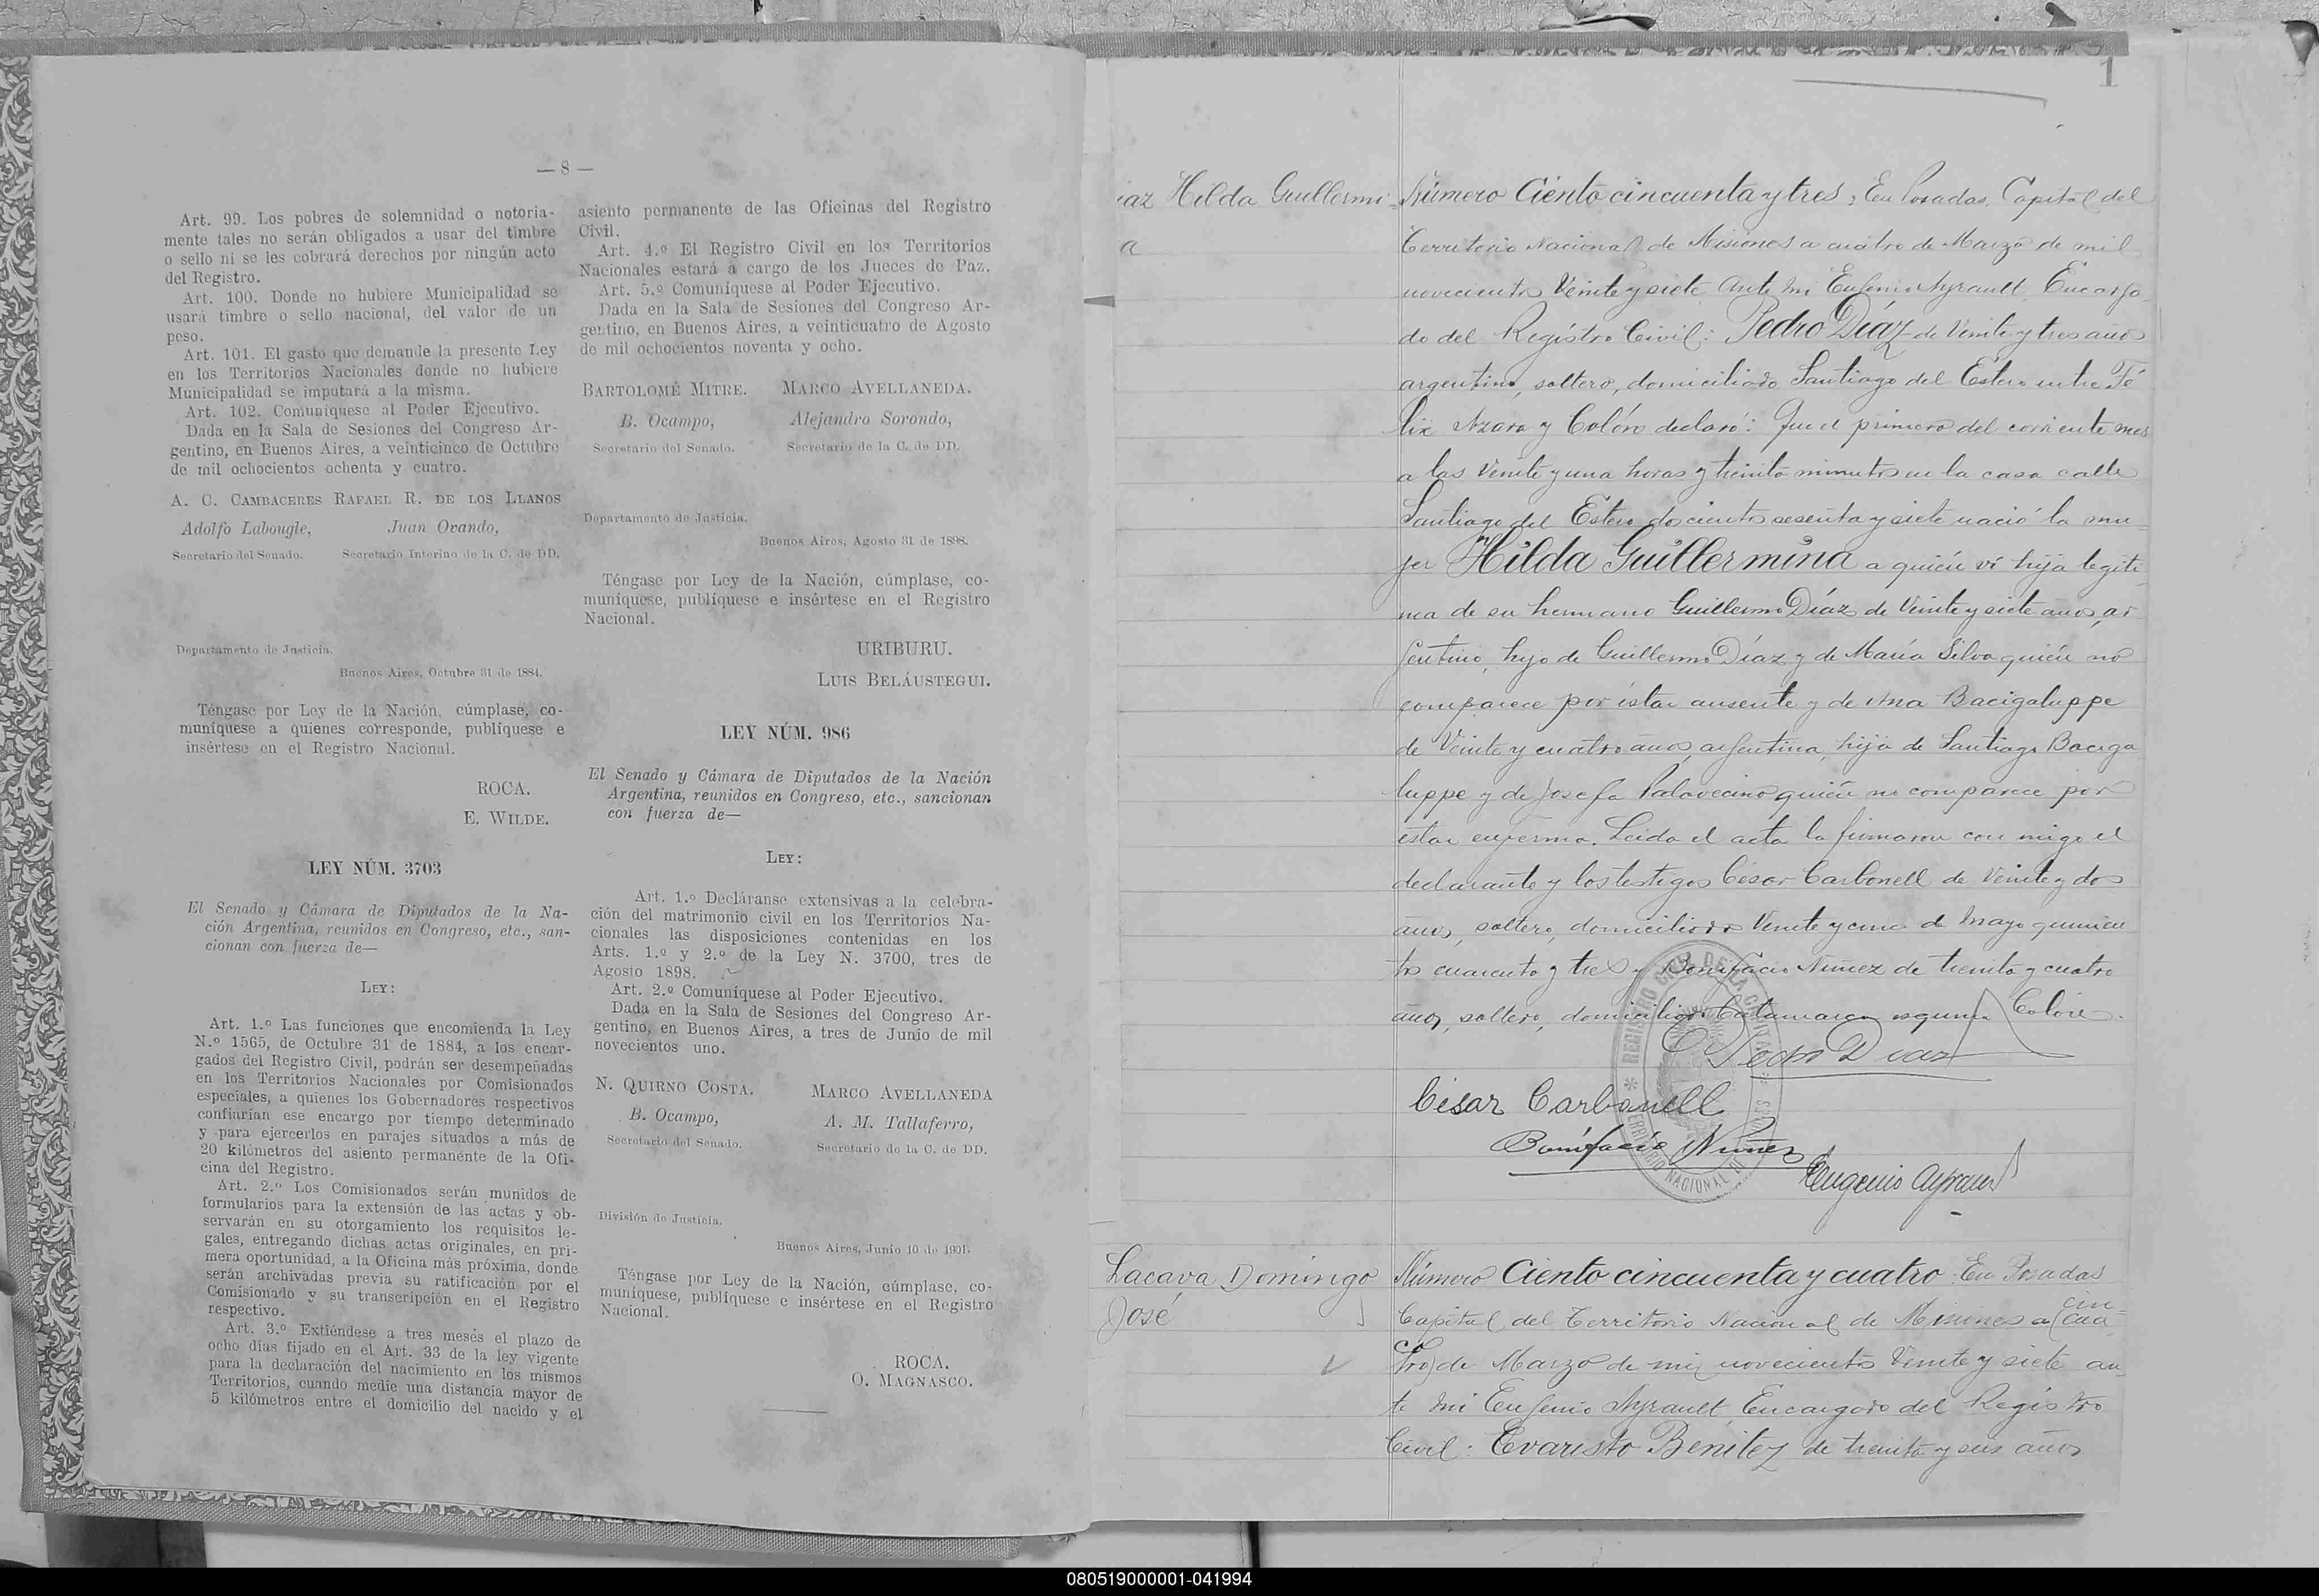 — 8 —
Art. 99. Los pobres de solemnidad o notoria-
mente tales no serán obligados a usar del timbre
o sello ni se les cobrará derechos por ningún acto
del Registro.
Art. 100. Donde no hubiere Municipalidad se
usará timbre o sello nacional, del valor de un
peso.
Art. 101. El gasto que demande la presente Ley
en los Territorios Nacionales donde no hubiere
Municipalidad se imputará a la misma.
Art. 102. Comuníquese al Poder Ejecutivo.
Dada en la Sala de Sesiones del Congreso Ar-
gentino, en Buenos Aires, a veinticinco de Octubre
de mil ochocientos ochenta y cuatro.
A. C. CAMBACERES RAFAEL R. DE LOS LLANOS
Adolfo Labougle, Juan Ovando,
Secretario del Senado. Secretario Interino de la C. de DD.
Departamento de Justicia.
Buenos Aires, Octubre 31 de 1884.
Téngase por Ley de la Nación, cúmplase, co-
muníquese a quienes corresponde, publíquese e
insértese en el Registro Nacional.
ROCA.
E. WILDE.
LEY NÚM. 3703
El Senado y Cámara de Diputados de la Na-
ción Argentina, reunidos en Congreso, etc., san-
cionan con fuerza de—
LEY:
Art. 1.º Las funciones que encomienda la Ley
N.º 1565, de Octubre 31 de 1884, a los encar-
gados del Registro Civil, podrán ser desempeñadas
en los Territorios Nacionales por Comisionados
especiales, a quienes los Gobernadores respectivos
confiarían ese encargo por tiempo determinado
y para ejercerlos en parajes situados a más de
20 kilómetros del asiento permanente de la Ofi-
cina del Registro.
Art. 2.º Los Comisionados serán munidos de
formularios para la extensión de las actas y ob-
servarán en su otorgamiento los requisitos le-
gales, entregando dichas actas originales, en pri-
mera oportunidad, a la Oficina más próxima, donde
serán archivadas previa su ratificación por el
Comisionado y su transcripción en el Registro
respectivo.
Art. 3.º Extiéndese a tres meses el plazo de
ocho días fijado en el Art. 33 de la ley vigente
para la declaración del nacimiento en los mismos
Territorios, cuando medie una distancia mayor de
5 kilómetros entre el domicilio del nacido y el
asiento permanente de las Oficinas del Registro
Civil.
Art. 4.º El Registro Civil en los Territorios
Nacionales estará a cargo de los Jueces de Paz.
Art. 5.º Comuníquese al Poder Ejecutivo.
Dada en la Sala de Sesiones del Congreso Ar-
gentino, en Buenos Aires, a veinticuatro de Agosto
de mil ochocientos noventa y ocho.
BARTOLOMÉ MITRE. MARCO AVELLANEDA.
B. Ocampo, Alejandro Sorondo,
Secretario del Senado. Secretario de la C. de DD.
Departamento de Justicia.
Buenos Aires, Agosto 31 de 1898.
Téngase por Ley de la Nación, cúmplase, co-
muníquese, publíquese e insértese en el Registro
Nacional.
URIBURU.
LUIS BELÁUSTEGUI.
LEY NÚM. 986
El Senado y Cámara de Diputados de la Nación
Argentina, reunidos en Congreso, etc., sancionan
con fuerza de—
LEY:
Art. 1.º Decláranse extensivas a la celebra-
ción del matrimonio civil en los Territorios Na-
cionales las disposiciones contenidas en los
Arts. 1.º y 2.º de la Ley N. 3700, tres de
Agosto 1898.
Art. 2.º Comuníquese al Poder Ejecutivo.
Dada en la Sala de Sesiones del Congreso Ar-
gentino, en Buenos Aires, a tres de Junio de mil
novecientos uno.
N. QUIRNO COSTA. MARCO AVELLANEDA
B. Ocampo, A. M. Tallaferro,
Secretario del Senado. Secretario de la C. de DD.
División de Justicia.
Buenos Aires, Junio 10 de 1901.
Téngase por Ley de la Nación, cúmplase, co-
muníquese, publíquese e insértese en el Registro
Nacional.
ROCA.
O. MAGNASCO.
1
iaz Hilda Guillermi-
a
Número Ciento cincuenta y tres, En Posadas, Capital del
Territorio Nacional de Misiones a cuatro de Marzo de mil
novecientos Veinte y siete, ante mi Eugenio Ayrault, Encarga
do del Registro Civil: Pedro Díaz de Veinte y tres años
argentino, soltero, domiciliado Santiago del Estero entre Fé
lix Azara y Colón declaró: Que el primero del corriente mes
a las Veinte y una horas y treinta minutos en la casa calle
Santiago del Estero doscientos sesenta y siete nació la mu-
jer Hilda Guillermina a quién ví hija legíti
ma de su hermano Guillermo Díaz de Veinte y siete años, ar
gentino, hijo de Guillermo Díaz y de María Silva quién no
comparece por estar ausente y de Ana Bacigaluppe
de Veinte y cuatro años, argentina, hija de Santiago Baciga
luppe y de Josefa Palavecino, quién no comparece por
estar enferma. Leida el acta la firmaron con migo el
declarante y los testigos César Carbonell de Veinte y dos
años, soltero, domiciliado Veinte y cinco de Mayo quinien
tos cuarenta y tres y Bonifacio Nuñez de treinta y cuatro
años, soltero, domiciliado Catamarca esquina Colón.
Pedro Diaz
César Carbonell
Bonifacio Nuñez
Eugenio Ayrault
REGISTRO CIVIL DE LA CAPITAL
TERRITORIO NACIONAL DE MISIONES
Lacava Domingo
José
Número Ciento cincuenta y cuatro: En Posadas
Capital del Territorio Nacional de Misiones a (cua
cin-
co
tro) de Marzo de mil novecientos Veinte y siete an
te mi Eugenio Ayrault, Encargado del Registro
Civil: Evaristo Benítez de treinta y seis años
080519000001-041994